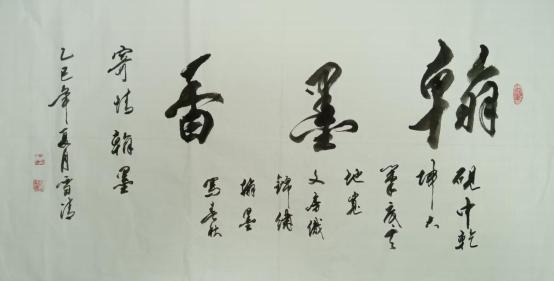 翰墨香
砚中乾
坤大
笔底天
地宽
文房织
锦绣
翰墨
写春秋
寄情翰墨
乙巳年夏月雪清